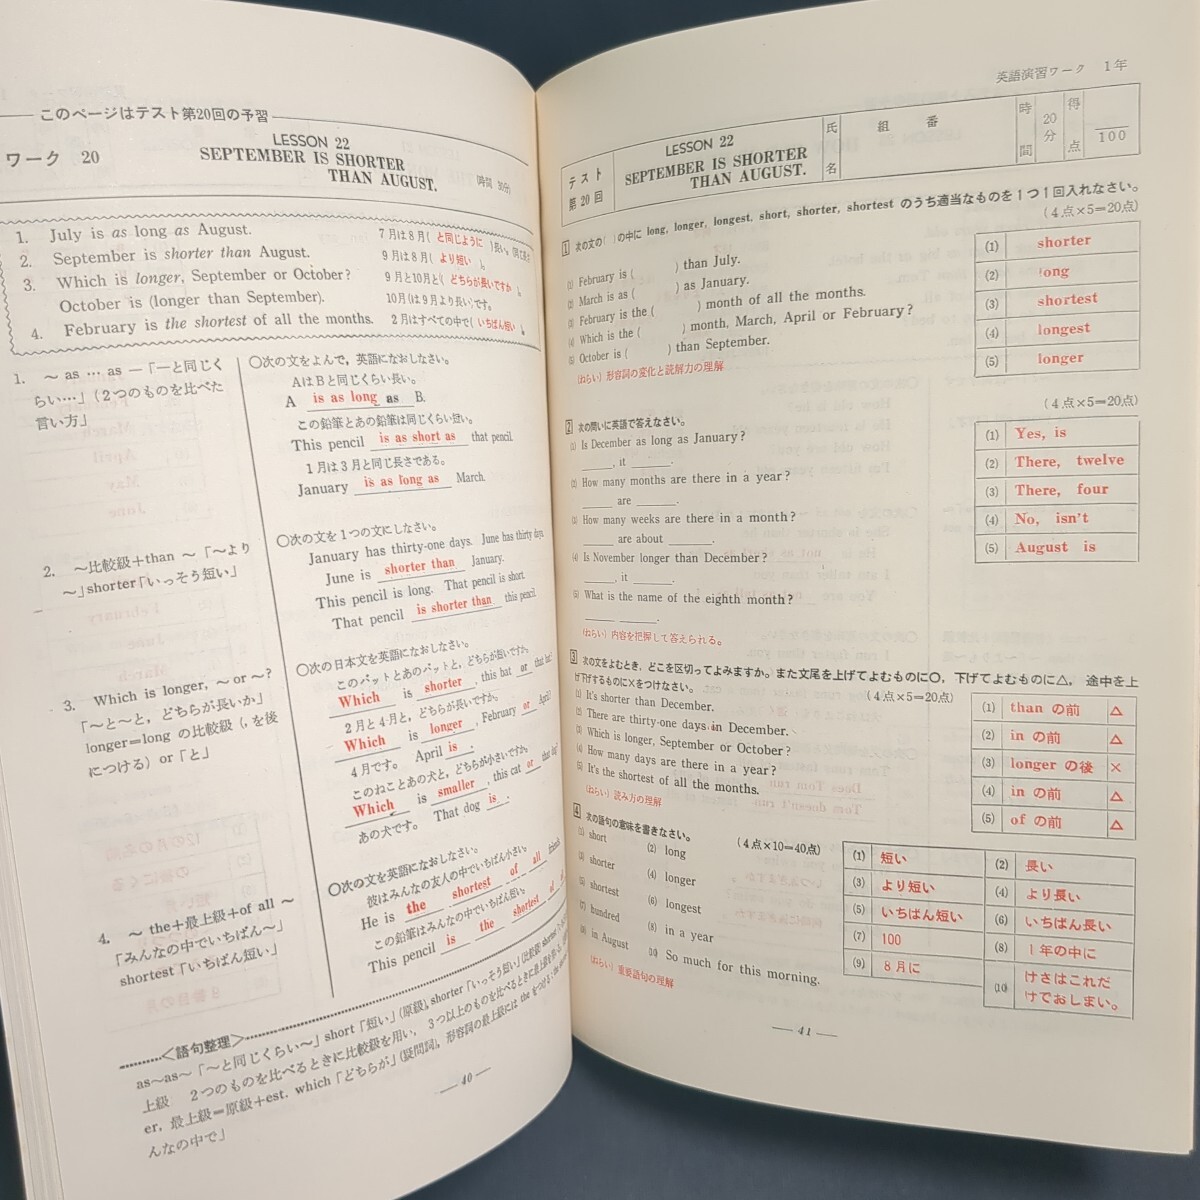 このページはテスト第20回の予習
ワーク 20
LESSON 22
SEPTEMBER IS SHORTER
THAN AUGUST.
(時間 30分)
1. July is as long as August. 7月は8月( と同じように )長い。
2. September is shorter than August. 9月は8月( より短い )。
3. Which is longer, September or October? 9月と10月と( どちらが長いですか )。
October is (longer than September). 10月(は9月より長い)です。
4. February is the shortest of all the months. 2月はすべての中で( いちばん短い )。
1. ～ as … as ―「―と同じく
らい…」(2つのものを比べた
言い方」
2. ～比較級+than ～「～より
～」shorter「いっそう短い」
3. Which is longer, ～ or ～?
「～と～と，どちらが長いか」
longer=long の比較級 (, を後
につける) or「と」
4. ～ the+最上級+of all ～
「みんなの中でいちばん～」
shortest「いちばん短い」
〇次の文をよんで，英語になおしなさい。
AはBと同じくらい長い。
A is as long as B.
この鉛筆とあの鉛筆は同じくらい短い。
This pencil is as short as that pencil.
1月は3月と同じ長さである。
January is as long as March.
〇次の文を1つの文にしなさい。
January has thirty-one days. June has thirty days.
June is shorter than January.
This pencil is long. That pencil is short.
That pencil is shorter than this pencil.
〇次の日本文を英語になおしなさい。
このバットとあのバットと，どちらが短いですか。
Which is shorter, this bat or that bat?
2月と4月と，どちらが長いですか。
Which is longer, February or April?
4月です。 April is.
このねことあの犬と，どちらが小さいですか。
Which is smaller, this cat or that dog?
あの犬です。 That dog is.
〇次の文を英語になおしなさい。
彼はみんなの友人の中でいちばん小さい。
He is the shortest of all friends.
この鉛筆はみんなの中でいちばん短い。
This pencil is the shortest of
<語句整理>
as～as～「～と同じくらい～」short「短い」(原級), shorter「いっそう短い」(比較級) shortest
上級 2つのものを比べるときに比較級を用い，3つ以上のものを比べるときに最上級を
er, 最上級=原級+est. which「どちらが」(疑問詞), 形容詞の最上級には the をつける;
んなの中で」
― 40 ―
英語演習ワーク 1年
テスト
第20回
LESSON 22
SEPTEMBER IS SHORTER
THAN AUGUST.
氏名
組 番
時間
20分
得点
100
1 次の文の( )の中に long, longer, longest. short, shorter, shortest のうち適当なものを1つ1回入れなさい。
(4点×5=20点)
(1) February is ( ) than July.
(2) March is as ( ) as January.
(3) February is the ( ) month of all the months.
(4) Which is the ( ) month, March, April or February?
(5) October is ( ) than September.
(ねらい) 形容詞の変化と読解力の理解
(1) shorter
(2) long
(3) shortest
(4) longest
(5) longer
2 次の問いに英語で答えなさい。
(4点×5=20点)
(1) Is December as long as January?
_____, it _____.
(2) How many months are there in a year?
_____ are _____.
(3) How many weeks are there in a month?
_____ are about _____.
(4) Is November longer than December?
_____, it _____.
(5) What is the name of the eighth month?
_____ _____.
(ねらい) 内容を把握して答えられる。
(1) Yes, is
(2) There, twelve
(3) There, four
(4) No, isn't
(5) August is
3 次の文をよむとき，どこを区切ってよみますか。また文尾を上げてよむものに〇，下げてよむものに△，途中を上
げ下げするものに×をつけなさい。
(4点×5=20点)
(1) It's shorter than December.
(2) There are thirty-one days in December.
(3) Which is longer, September or October?
(4) How many days are there in a year?
(5) It's the shortest of all the months.
(ねらい) 読み方の理解
(1) than の前 △
(2) in の前 △
(3) longer の後 ×
(4) in の前 △
(5) of の前 △
4 次の語句の意味を書きなさい。
(4点×10=40点)
(1) short
(2) long
(3) shorter
(4) longer
(5) shortest
(6) longest
(7) hundred
(8) in a year
(9) in August
(10) So much for this morning.
(ねらい) 重要語句の理解
(1) 短い
(2) 長い
(3) より短い
(4) より長い
(5) いちばん短い
(6) いちばん長い
(7) 100
(8) 1年の中に
(9) 8月に
(10) けさはこれだ
けでおしまい。
― 41 ―